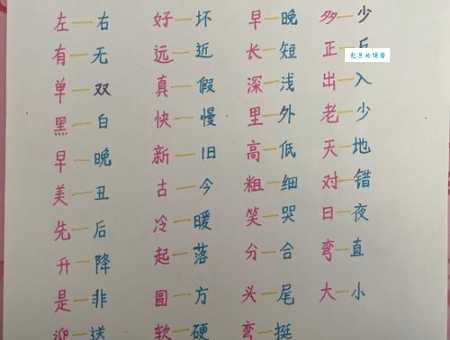 左—右 好—坏 早—晚 多—少
有—无 远—近 长—短 正—
单—双 真—假 深—浅 出—入
黑—白 快—慢 里—外 老—少
早—晚 新—旧 高—低 天—地
美—丑 古—今 粗—细 对—错
先—后 冷—暖 笑—哭 日—夜
升—降 起—落 分—合 弯—直
是—非 圆—方 头—尾 大—小
迎—送 软—硬 弯—挺